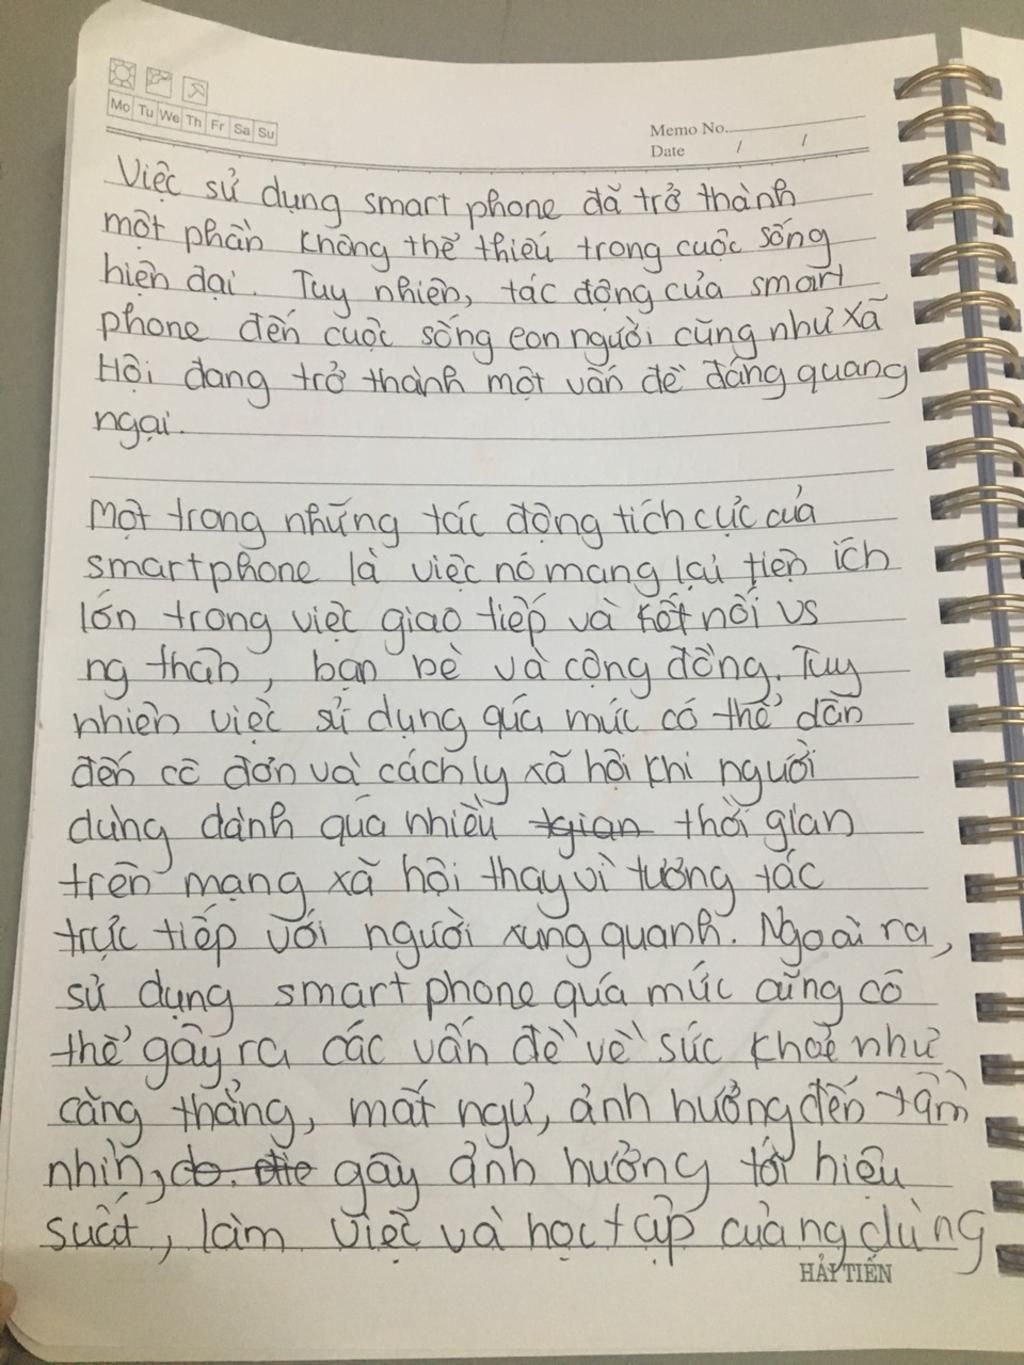 Mo Tu We Th Fr Sa Su
Memo No.
Date / /
Việc sử dụng smart phone đã trở thành
một phần không thể thiếu trong cuộc sống
hiện đại. Tuy nhiên, tác động của smart
phone đến cuộc sống con người cũng như xã
Hội đang trở thành một vấn đề đáng quang
ngại.
Một trong những tác động tích cực của
smartphone là việc nó mang lại tiện ích
lớn trong việc giao tiếp và kết nối vs
ng thân, bạn bè và cộng đồng. Tuy
nhiên việc sử dụng quá mức có thể dẫn
đến cô đơn và cách ly xã hội khi người
dùng dành quá nhiều tgian thời gian
trên mạng xã hội thay vì tương tác
trực tiếp với người xung quanh. Ngoài ra,
sử dụng smart phone quá mức cũng có
thể gây ra các vấn đề về sức khoẻ như
căng thẳng, mất ngủ, ảnh hưởng đến tầm
nhìn, gây ảnh hưởng tới hiệu
suất, làm việc và học tập của ng dùng
HẢI TIẾN